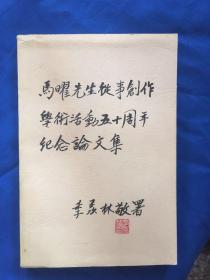 馬曜先生從事創作
學術活動五十周年
紀念論文集
季羨林敬署